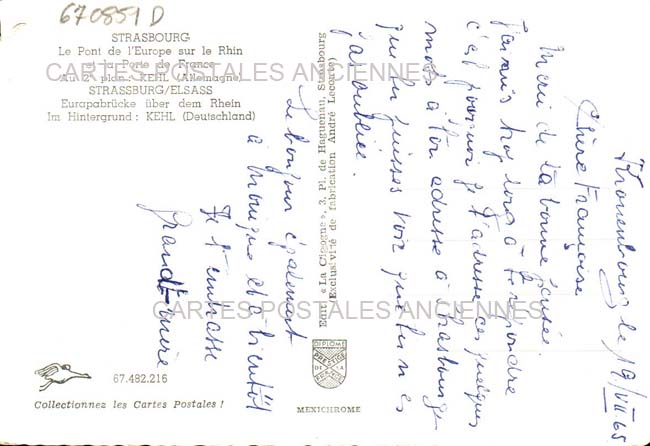 670851 D
STRASBOURG
Le Pont de l'Europe sur le Rhin
Porte de France
Au 2e plan : KEHL (Allemagne)
STRASSBURG/ELSASS
Europabrücke über dem Rhein
Im Hintergrund : KEHL (Deutschland)
CARTES POSTALES ANCIENNES
Edit. «La Cigogne», 3, Pl. de Haguenau, Strasbourg
(Exclusivité de fabrication André Leconte)
Kronenbourg le 19/VII 65
Chère Françoise
Merci de ta bonne pensée.
J'aurais trop long à répondre
c'est pourquoi je t'adresse ces quelques
mots à ton adresse à Strasbourg
que tu puisses voir que tu n'es
pas oubliée.
Le bonjour également
à Monique et à bientôt
Je t'embrasse
Grand-mère
CARTES POSTALES ANCIENNES
DIPLOME
PRESTIGE
DE LA
FRANCE
67.482.216
Collectionnez les Cartes Postales !
MEXICHROME